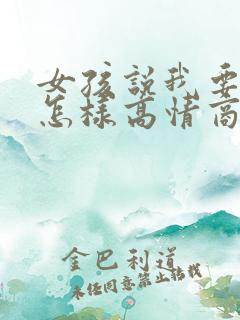 女孩说我要
怎样高情商
金巴利道
未经同意禁止转载